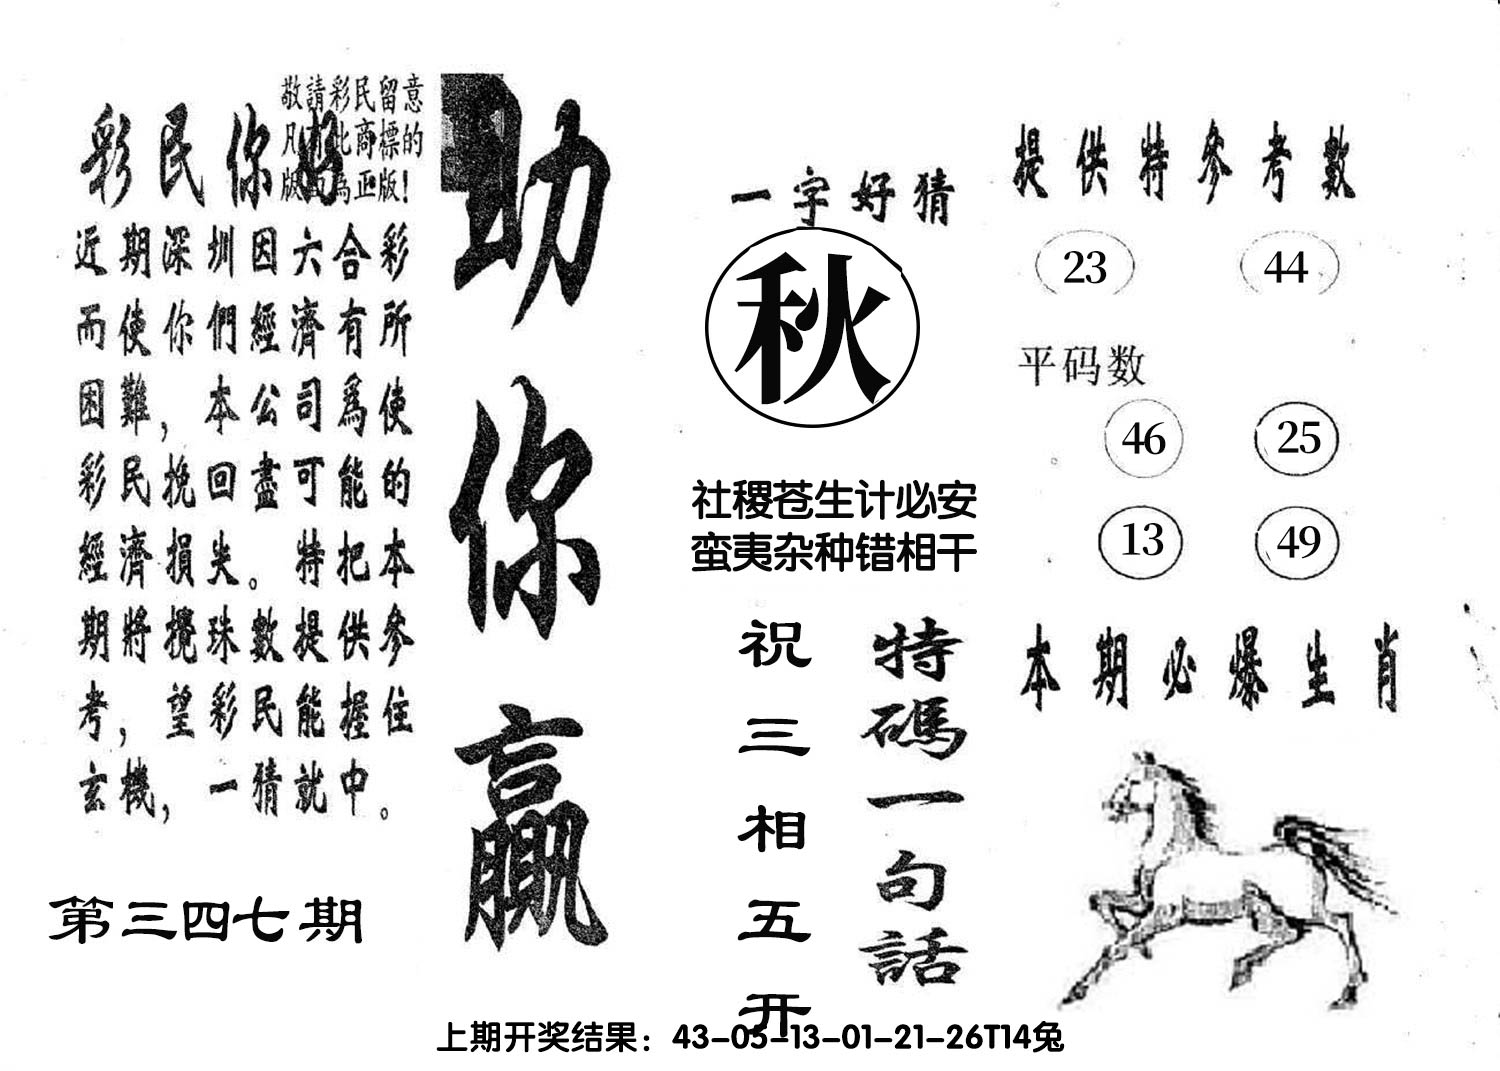 敬請彩民留意
凡有此商標的
版面為正版！
彩民你好
近期深圳因六合彩
而使你們經濟有所
困難，本公司爲使
彩民挽回盡可能的
經濟損失。特把本
期將攪珠數提供參
考，望彩民能握住
玄機，一猜就中。
第三四七期
助你贏
一字好猜
秋
社稷苍生计必安
蛮夷杂种错相干
特碼一句話
祝三相五开
提供特參考數
23 44
平码数
46 25
13 49
本期必爆生肖
上期开奖结果：43-05-13-01-21-26T14兔